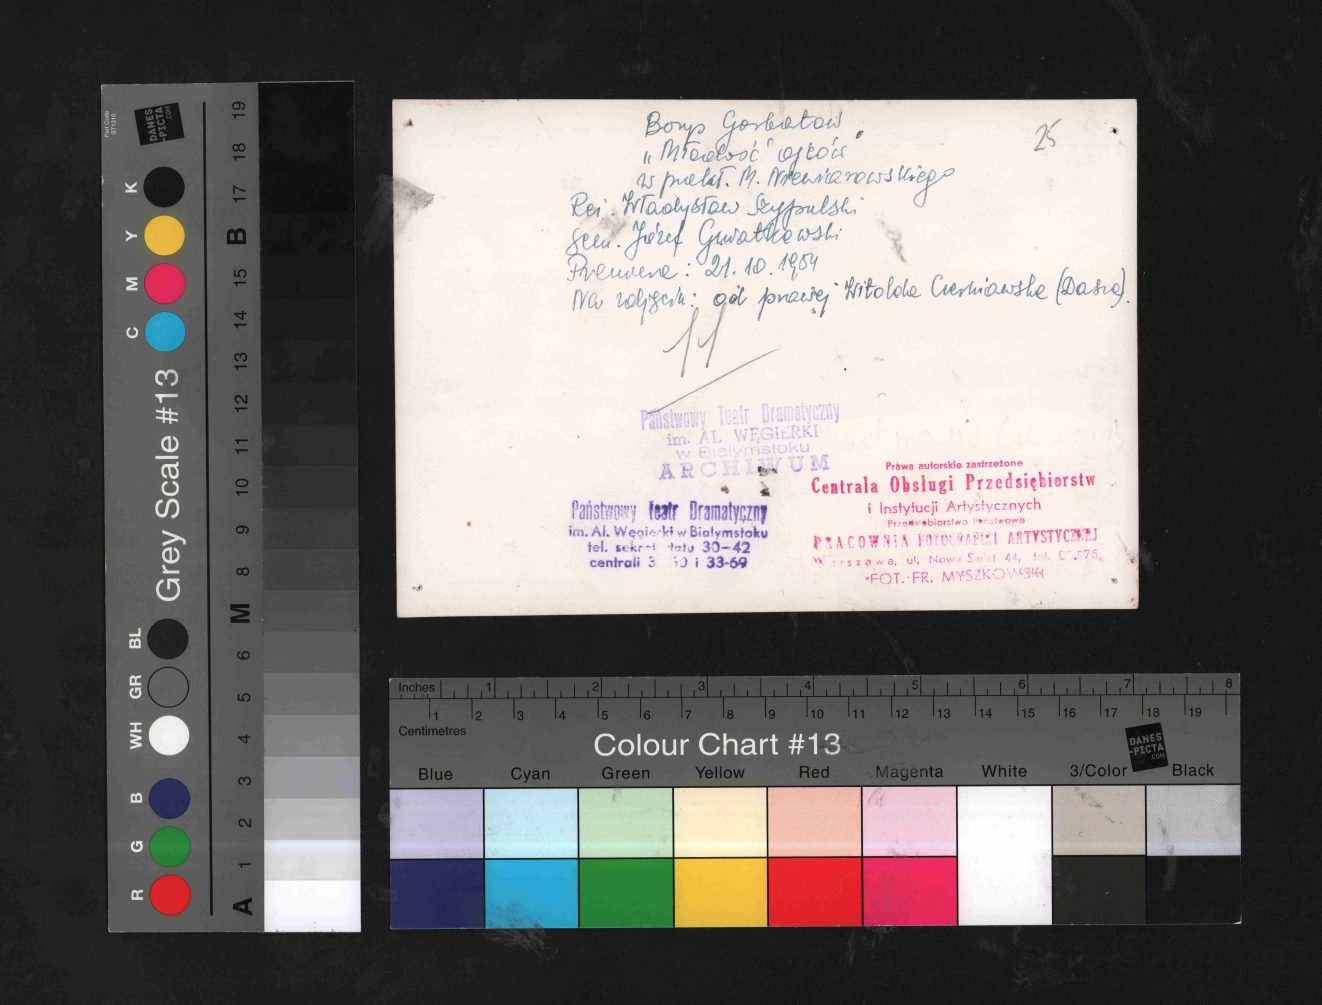 Borys Gorbatow
„Młodość ojców"
w przekł. M. Niewiarowskiego
Reż. Władysław Szypulski
Scen. Józef Gwiatkowski
Premiera: 21.10.1954
Na zdjęciu: od prawej Witolda Czerniawska (Dasza).
25
11
Państwowy Teatr Dramatyczny
im. AL WĘGIERKI
w Białymstoku
ARCHIWUM
Państwowy Teatr Dramatyczny
im. Al. Węgierki w Białymstoku
tel. 30-42
centrali i 33-69
Prawa autorskie zastrzeżone
Centrala Obsługi Przedsiębiorstw
i Instytucji Artystycznych
Przedsiębiorstwo Państwowe
PRACOWNIA FOTOGRAFIKI ARTYSTYCZNEJ
Warszawa, ul. Nowy Świat 44, tel.
FOT. FR. MYSZKOWSKI
Part Code
ST1316
DANES
-PICTA
.COM
K Y M C
Grey Scale #13
BL GR WH B G R
19 18 17 B 15 14 13 12 11 10 9 8 M 6 5 4 3 2 1 A
Inches 1 2 3 4 5 6 7 8
1 2 3 4 5 6 7 8 9 10 11 12 13 14 15 16 17 18 19
Centimetres
Colour Chart #13
DANES
-PICTA
.COM
Blue Cyan Green Yellow Red Magenta White 3/Color Black